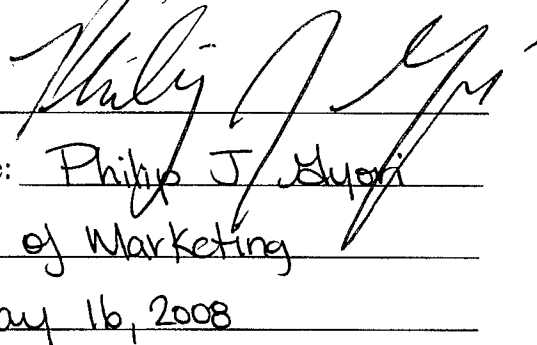 Philip J Gyori
: Philip J. Gyori
of Marketing
ay 16, 2008